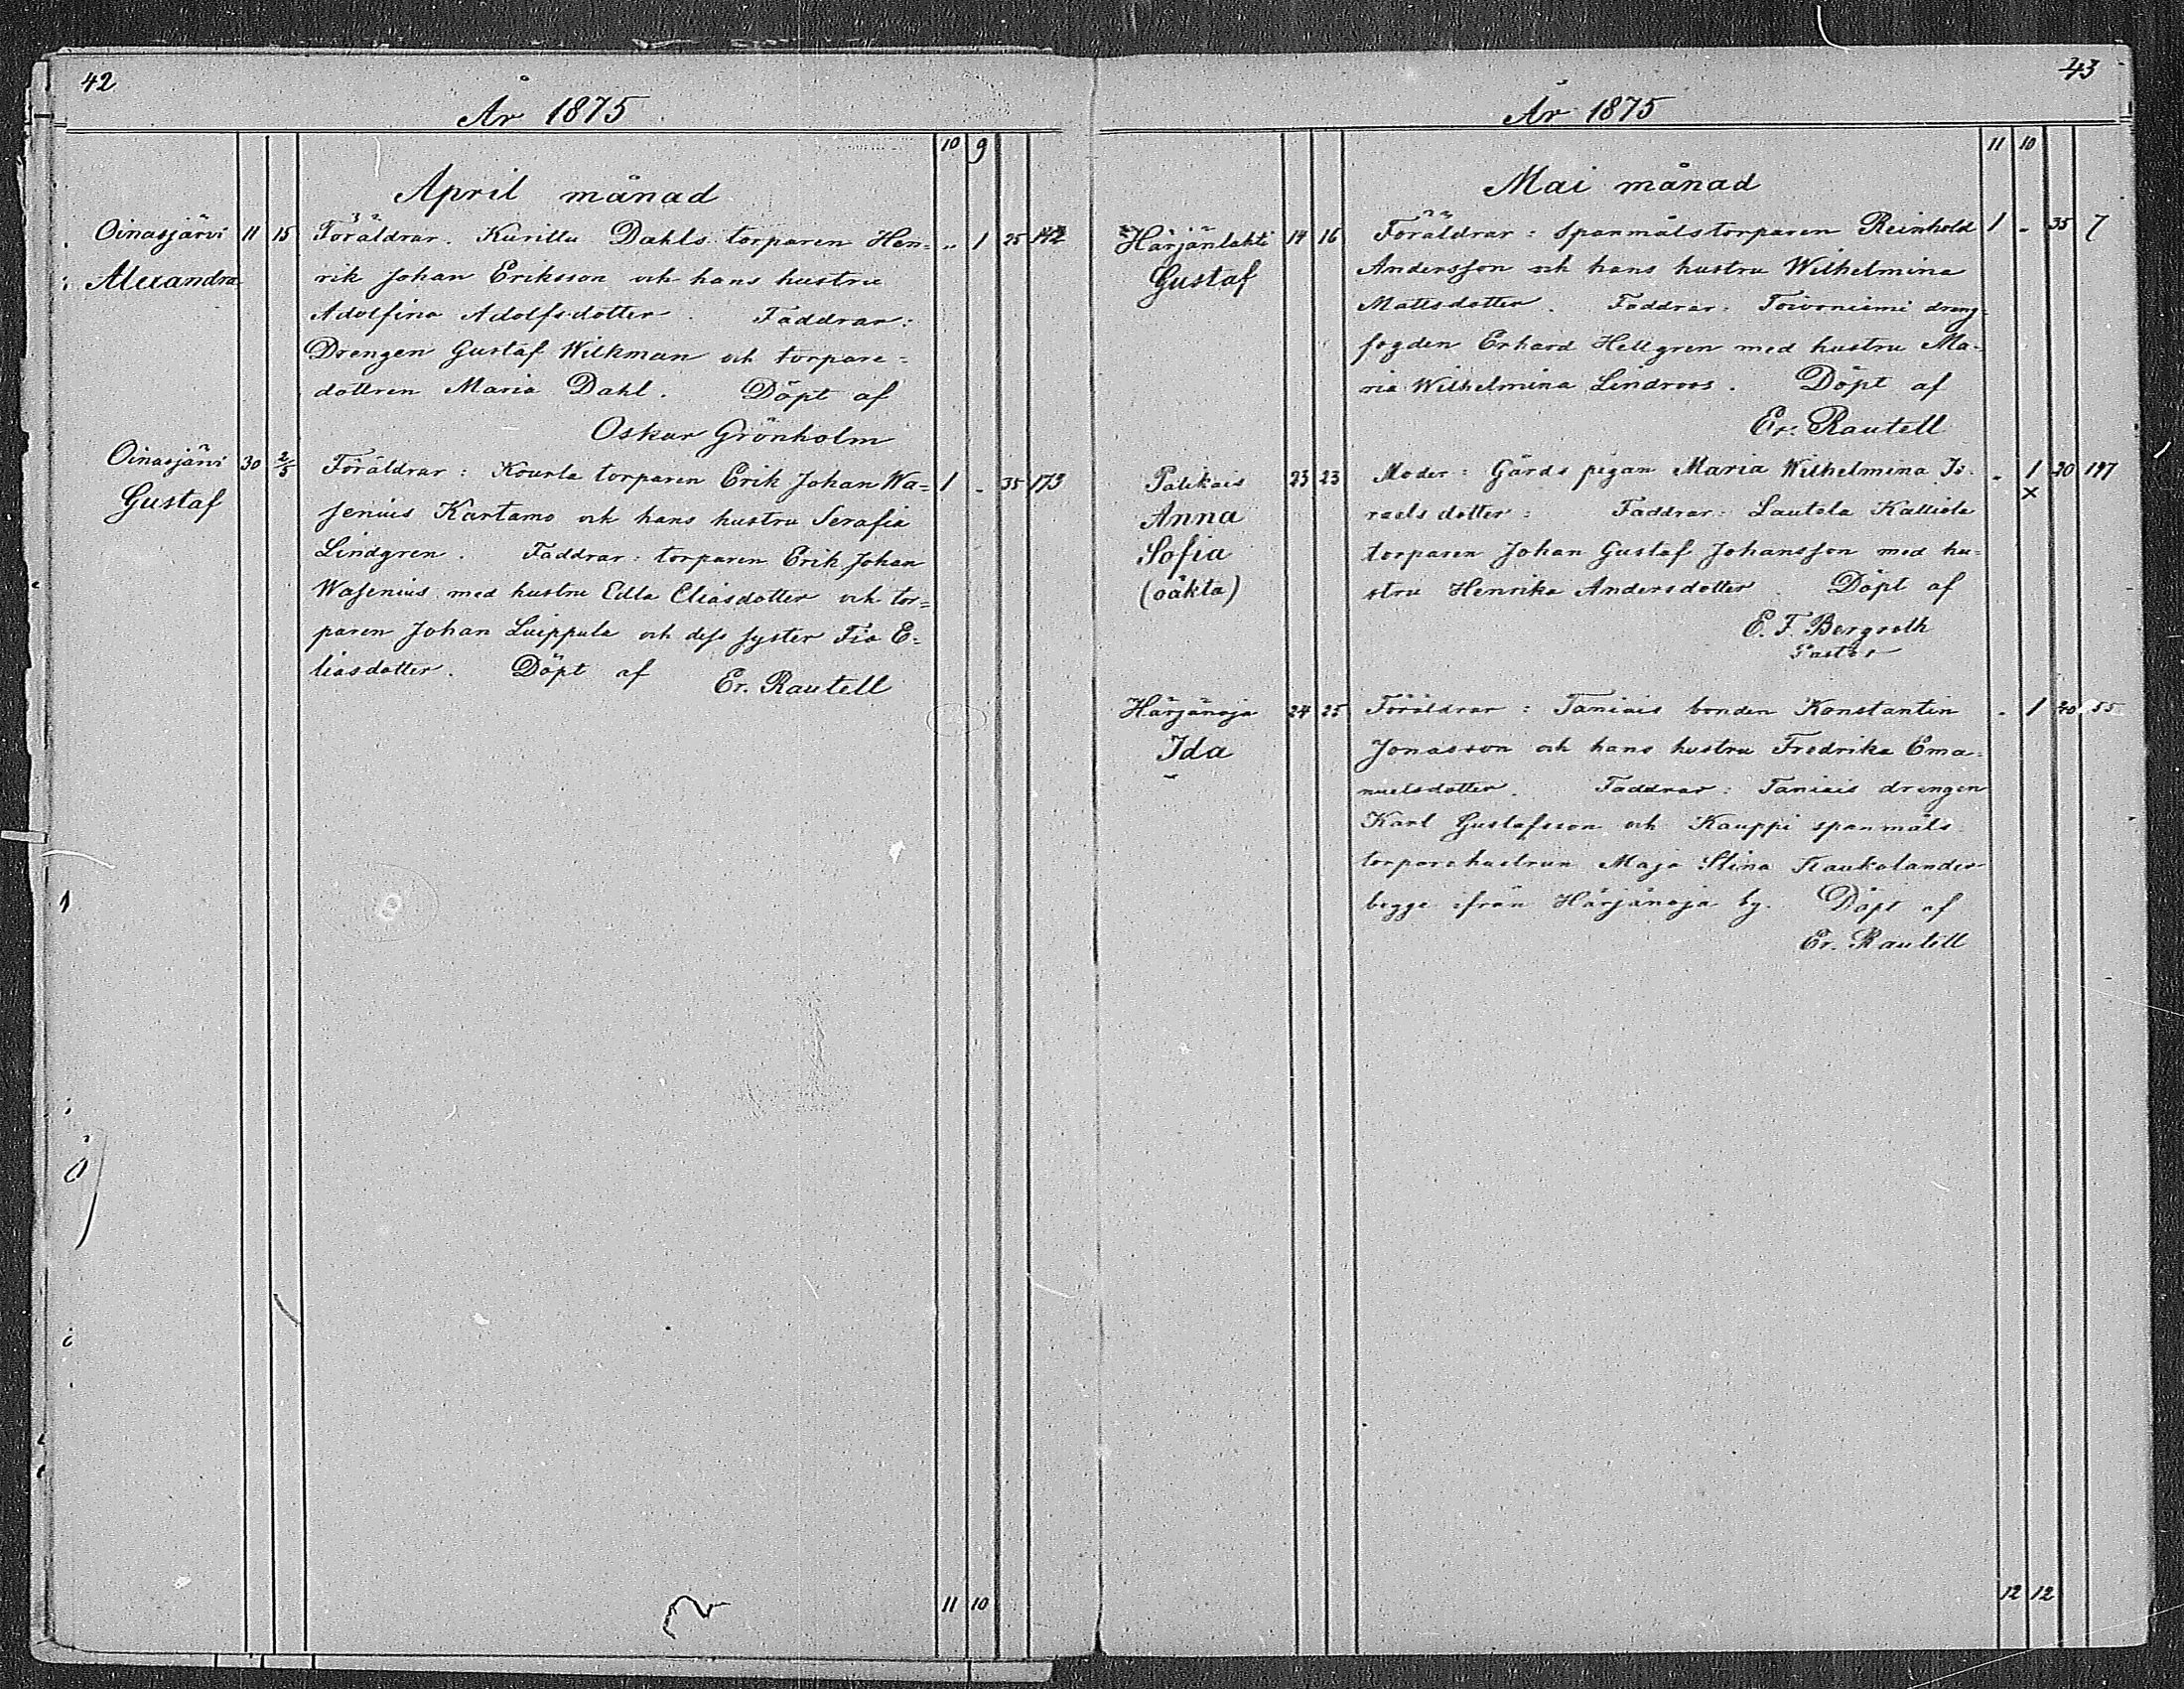 42
År 1875
10 9
April månad
Oinasjärvi 11 15 Föräldrar. Kurillu Dahls torparen Hen= „ 1 25 142
Alexandra rik Johan Eriksson och hans hustru
Adolfina Adolfsdotter. Faddrar:
Drengen Gustaf Wilkman och torpare=
dottren Maria Dahl. Döpt af
Oskar Grönholm
Oinasjärvi 30 2/5 Föräldrar: Kourla torparen Erik Johan Wa= 1 - 35 173
Gustaf senius Kartamo och hans hustru Serafia
Lindgren. Faddrar: torparen Erik Johan
Wasenius med hustru Edla Eliasdotter och tor=
paren Johan Luippula och dess syster Fia E=
liasdotter. Döpt af Er. Rautell
11 10
43
År 1875
11 10
Mai månad
Härjänlahti 14 16 Föräldrar: Spanmålstorparen Reinhold 1 - 35 7
Gustaf Andersson och hans hustru Wilhelmina
Mattsdotter. Faddrar: Toivoniemi dreng=
fogden Erhard Hellgren med hustru Ma=
ria Wilhelmina Lindroos. Döpt af
Er. Rautell
23 23 Moder: Gårds pigan Maria Wilhelmina Is= - 1 20 197
Anna raelsdotter: Faddrar: Lautela Kalliola x
Sofia torparen Johan Gustaf Johansson med hu=
(oäkta) stru Henrika Andersdotter. Döpt af
E. F. Bergroth
Pastor
Härjänoja 24 25 Föräldrar: Taniais bonden Konstantin - 1 40 55
Ida Jonasson och hans hustru Fredrika Ema=
nuelsdotter. Faddrar: Taniais drengen
Karl Gustafsson och Kauppi spanmåls
torparehustrun Maja Stina Kaukolander
begge ifrån Härjänoja by. Döpt af
Er. Rautell
12 12